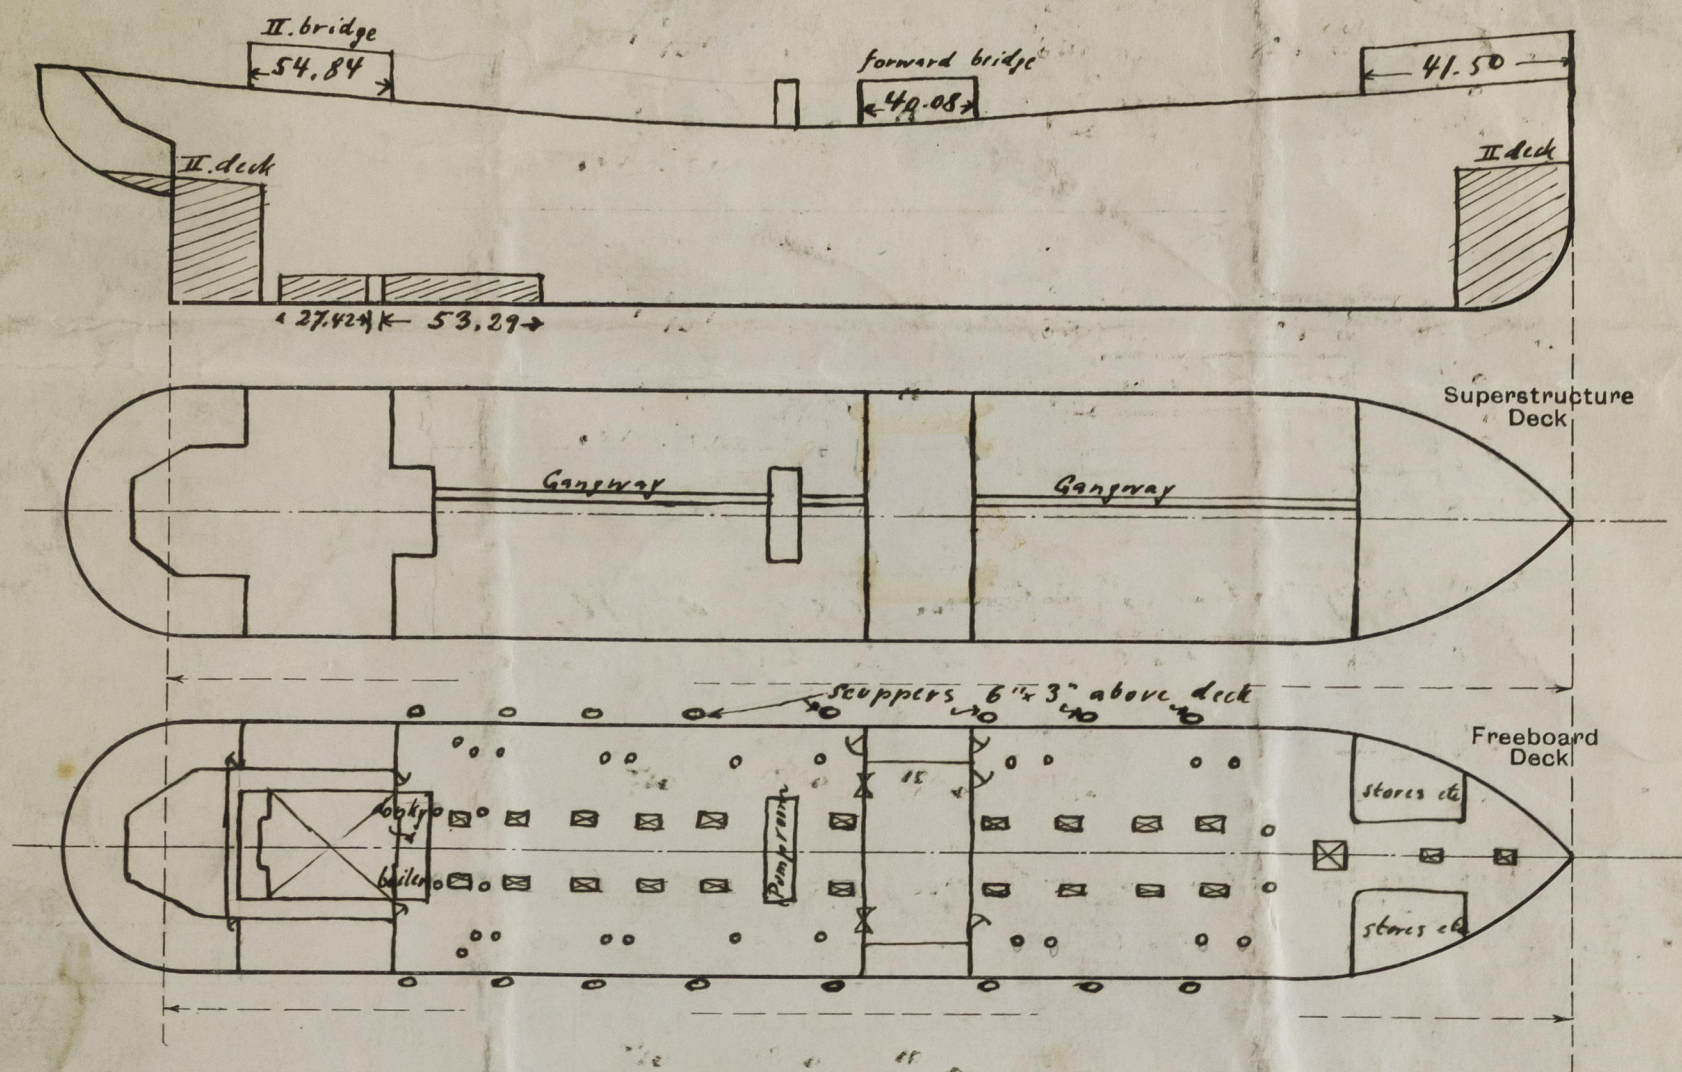 II. bridge
54.84
forward bridge
40.08
41.50
II. deck
II deck
27.42
53.29
Superstructure
Deck
Gangway
Gangway
scuppers 6"x 3" above deck
Freeboard
Deck
stores etc
donky
Pumproom
boiler
stores etc